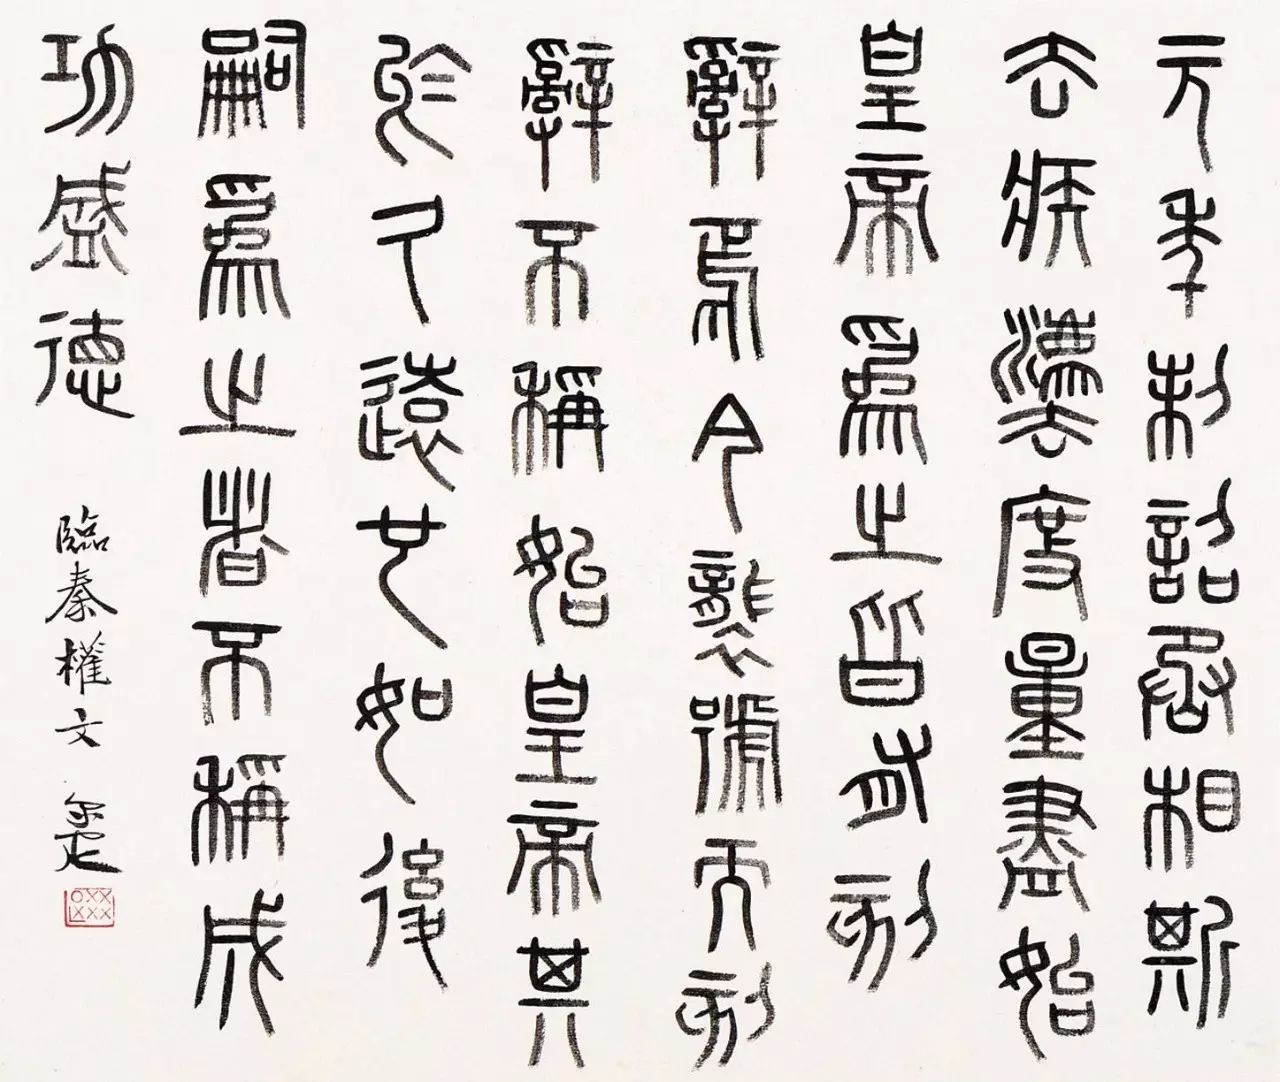 元年制詔丞相斯
去疾灋度量盡始
皇帝爲之皆有刻
辭焉今襲號而刻
辭不稱始皇帝其
於久遠也如後
嗣爲之者不稱成
功盛德
臨秦權文